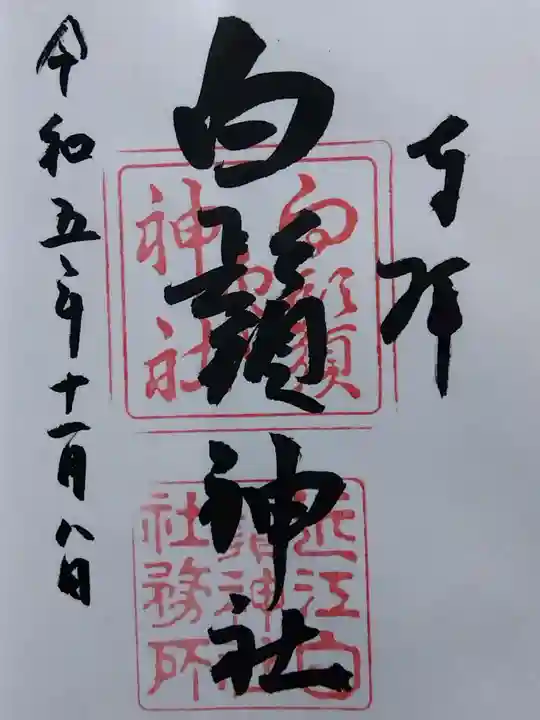 奉拝
白鬚神社
令和五年十一月八日
白鬚神社
近江白鬚神社社務所